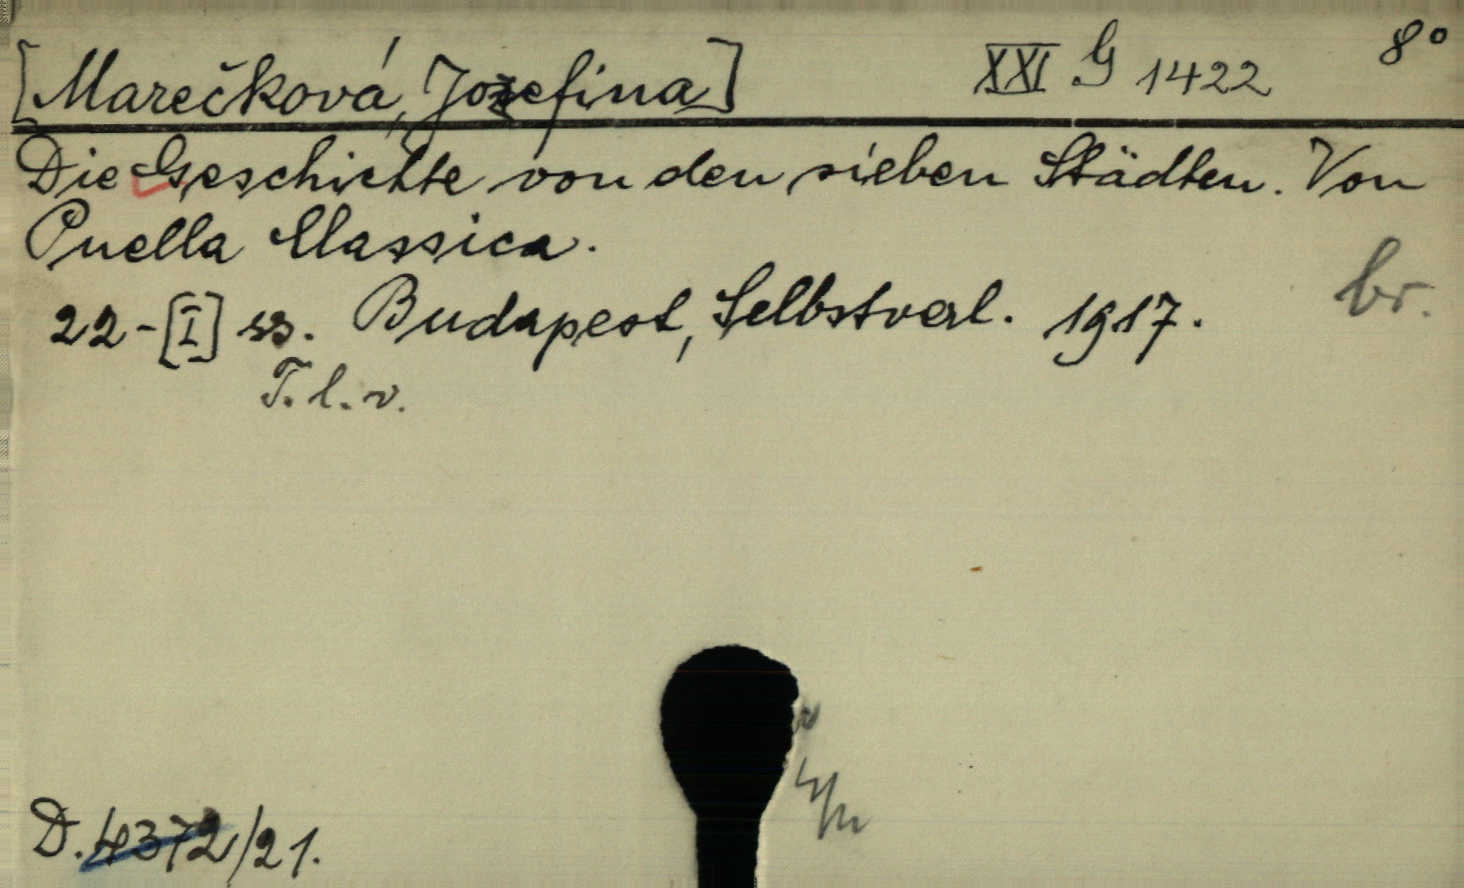 [Marečková, Jozefina] XXI G 1422 8°
Die Geschichte von den sieben Städten. Von
Puella Classica.
br.
22-[I] ss. Budapest, Selbstverl. 1917.
T. l. v.
D. 4372/21.